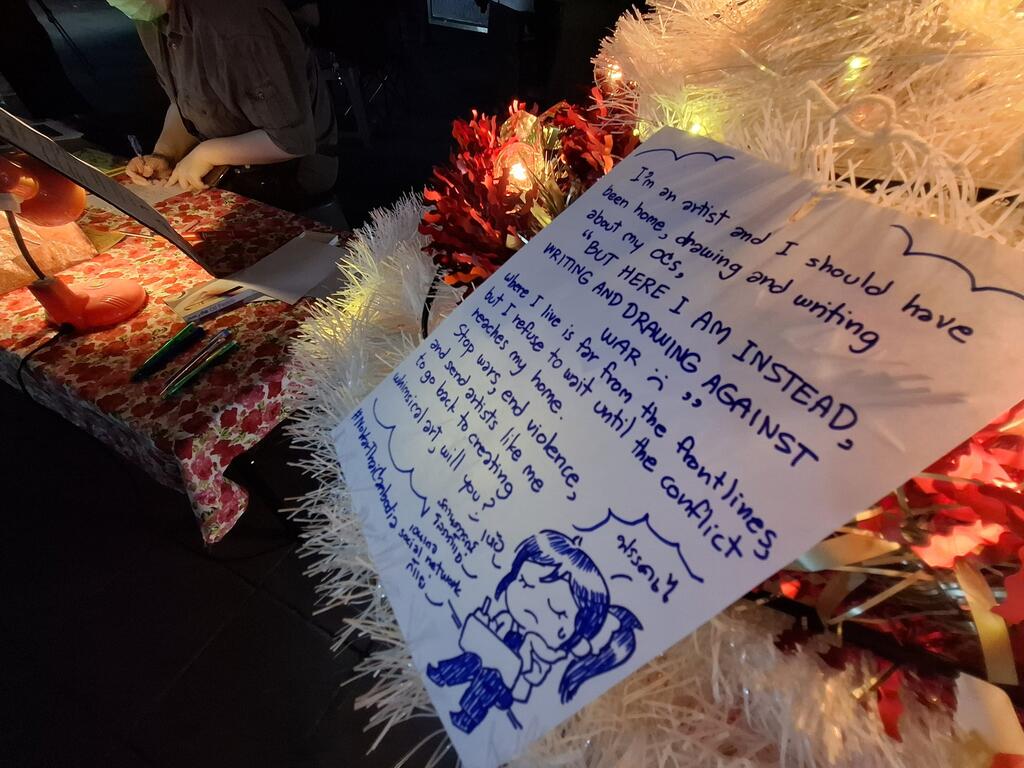 I'm an artist and I should have
been home, drawing and writing
about my OCs,
"BUT HERE I AM INSTEAD,
WRITING AND DRAWING AGAINST
WAR :( "
where I live is far from the frontlines
but I refuse to wait until the conflict
reaches my home.
Stop wars, end violence,
and send artists like me
to go back to creating
whimsical art, will you?
#NoWarThaiCambodia
social network